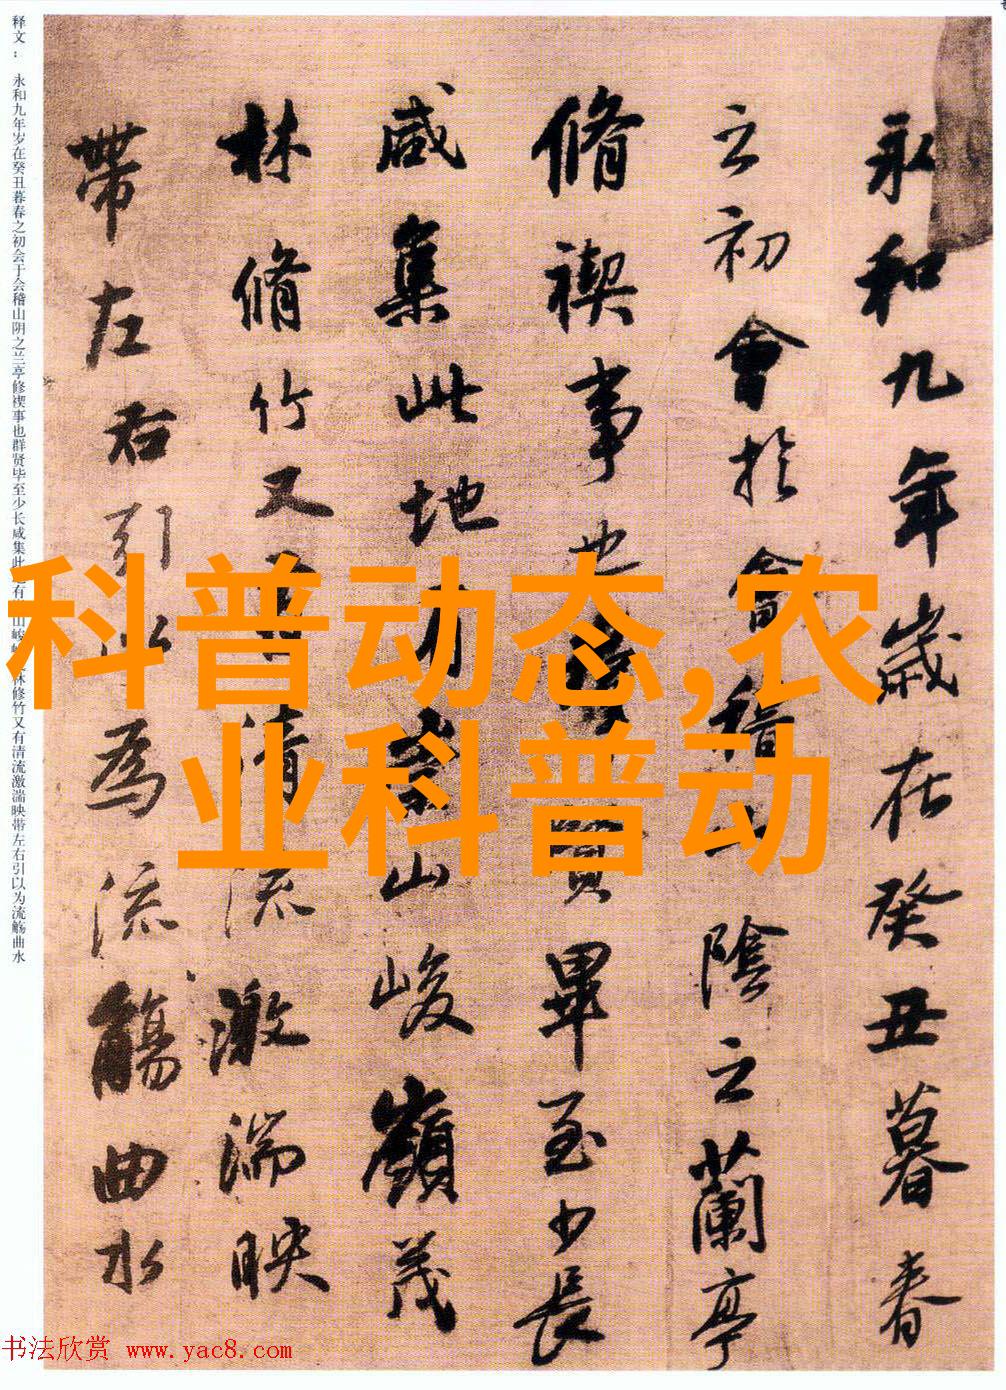 永和九年歲在癸丑暮春
之初會於會稽陰之蘭亭
脩禊事也賢畢至少長
咸集此地有山峻嶺茂
林脩竹又清流激湍映
帶左右引以為流觴曲水
释文：永和九年岁在癸丑暮春之初会于会稽山阴之兰亭修禊事也群贤毕至少长咸集此有山峻林修竹又有清流激湍映带左右引以为流觞曲水
科普动态,农
业科普动
书法欣赏 www.yac8.com